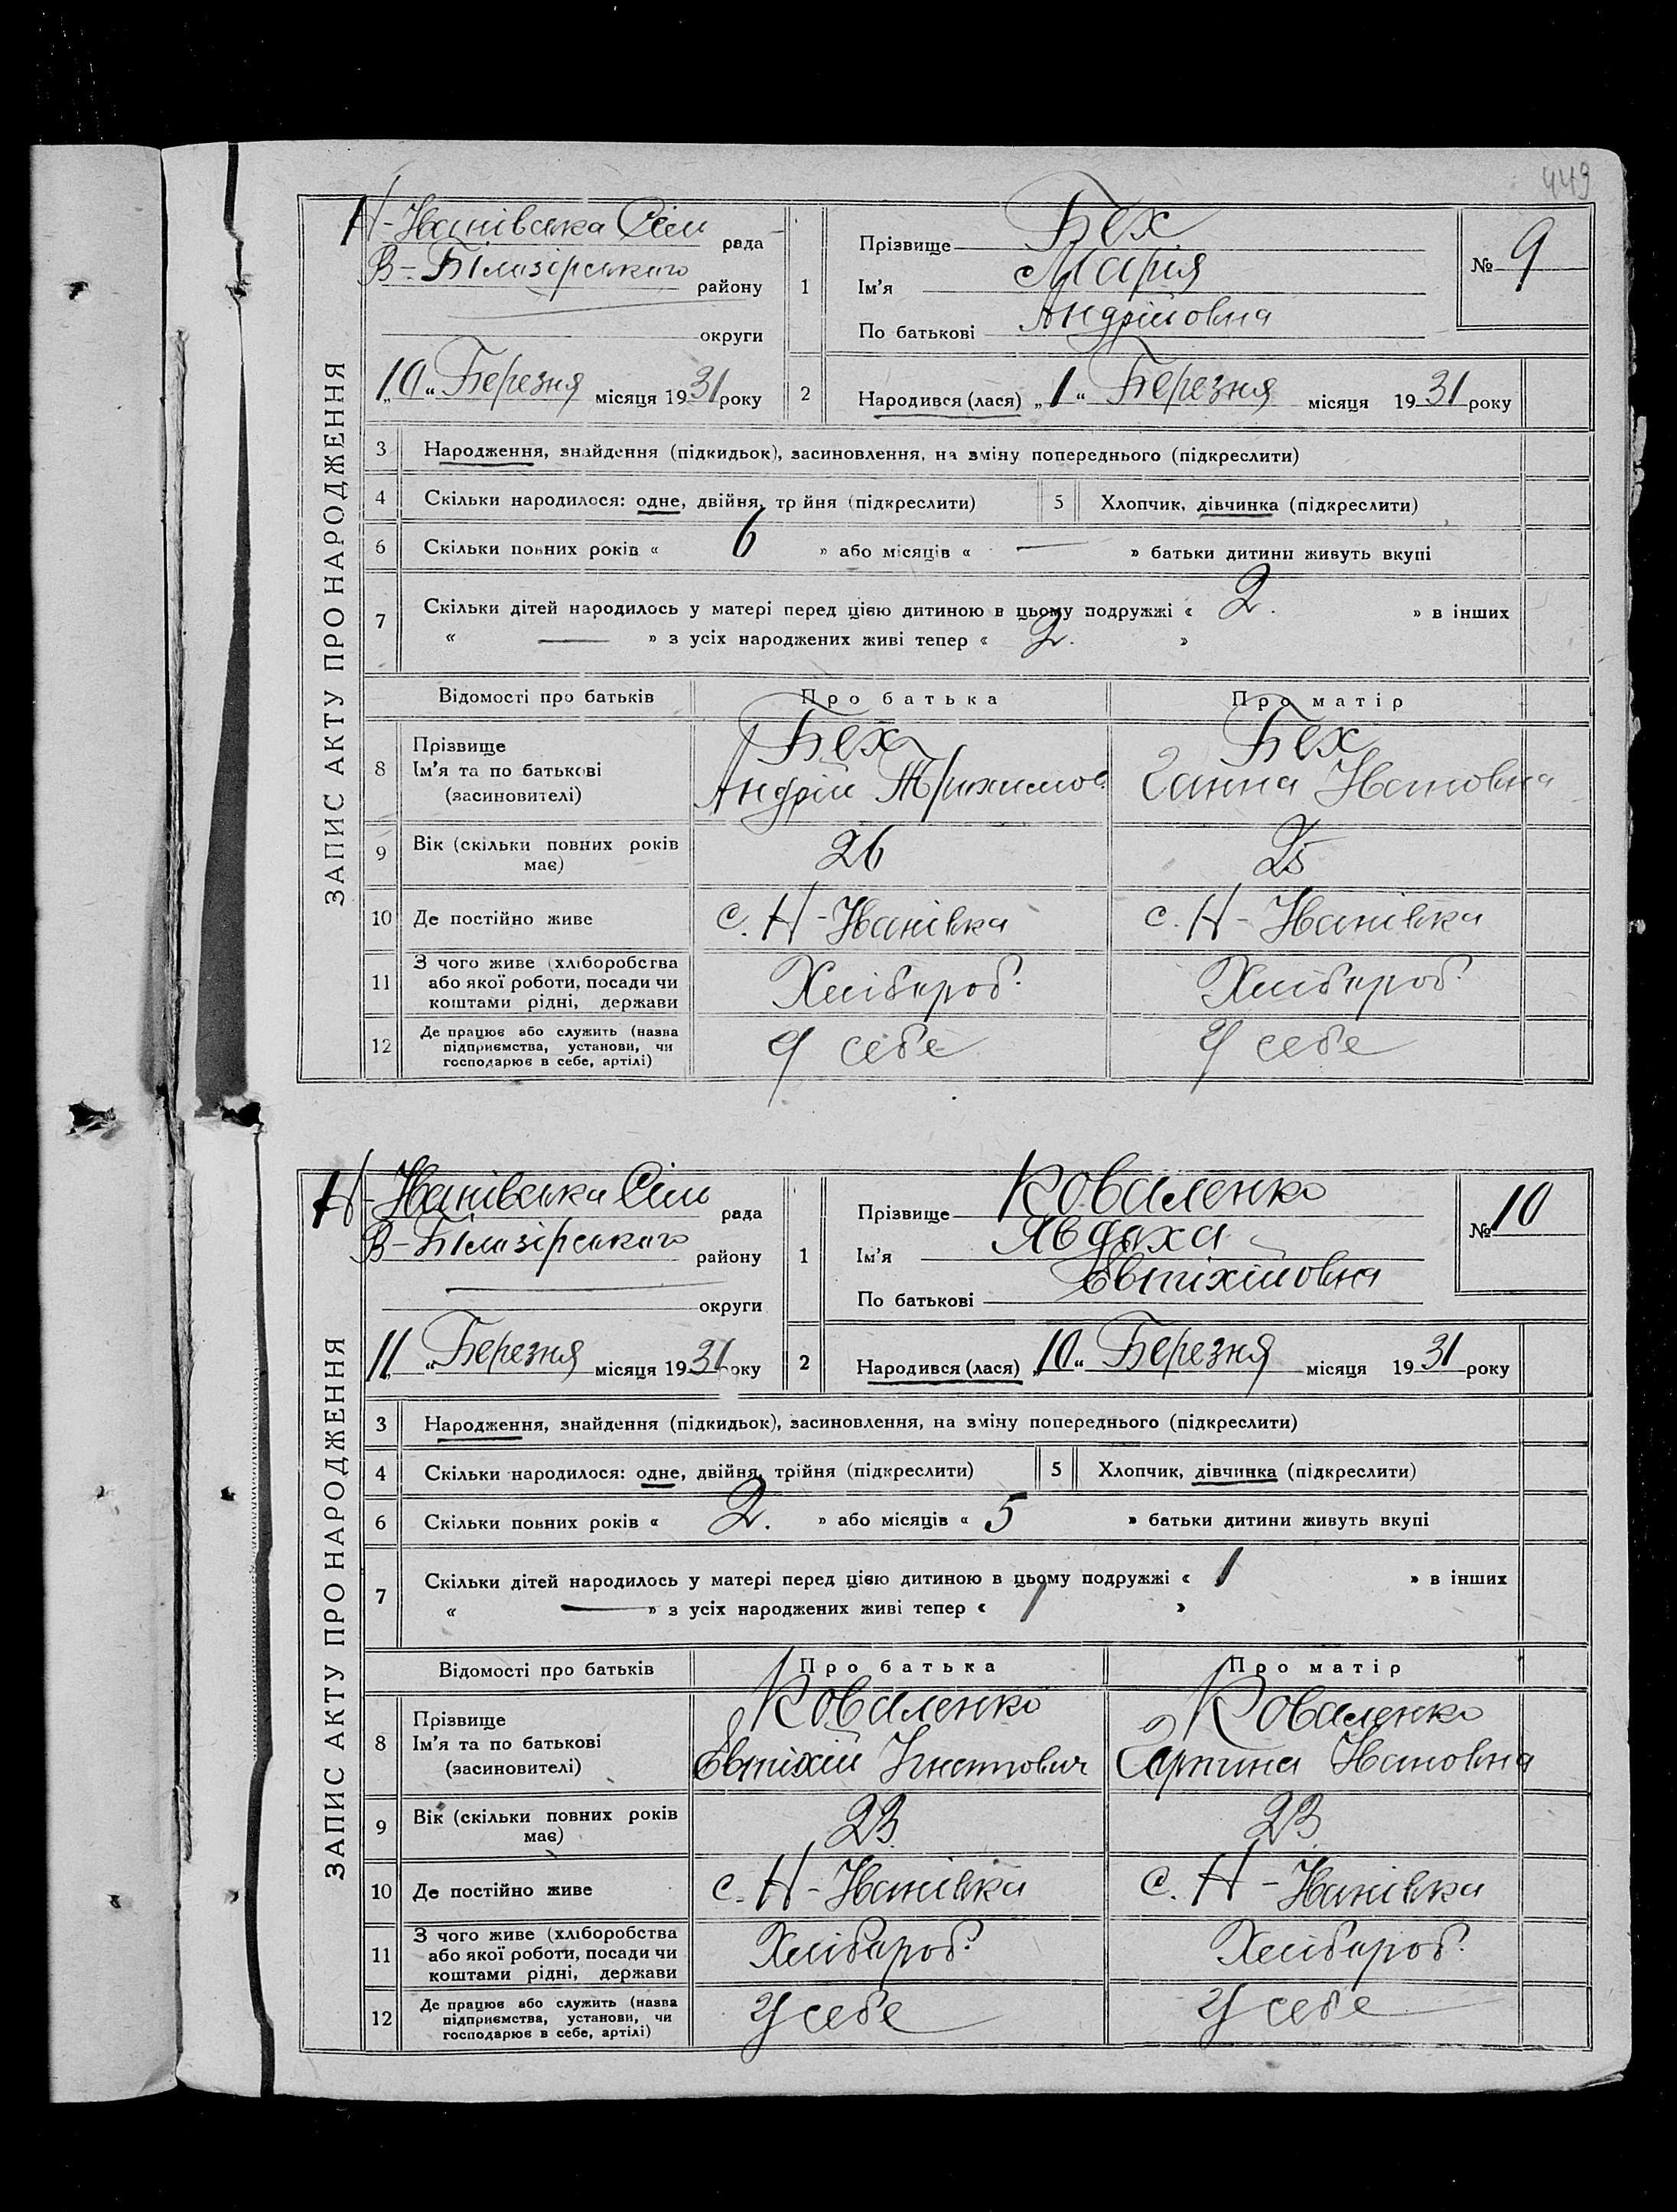 449
ЗАПИС АКТУ ПРО НАРОДЖЕННЯ
Н-Іванівська Сіль рада
В-Білазірського району
округи
„10“ Березня місяця 1931 року
1
Прізвище Бех
Ім'я Марія
По батькові Андрійовна
№ 9
2
Народився (лася) „1“ Березня місяця 1931 року
3 Народження, знайдення (підкидьок), засиновлення, на зміну попереднього (підкреслити)
4 Скільки народилося: одне, двійня, трійня (підкреслити) 5 Хлопчик, дівчинка (підкреслити)
6 Скільки повних років « 6 » або місяців « — » батьки дитини живуть вкупі
7 Скільки дітей народилось у матері перед цією дитиною в цьому подружжі « 2. » в інших
« — » з усіх народжених живі тепер « 2. »
Відомості про батьків Про батька Про матір
8 Прізвище Бех Бех
Ім'я та по батькові Андрій Ганна Івановна
(засновителі)
9 Вік (скільки повних років має) 26 25
10 Де постійно живе с. Н-Іванівка с. Н-Іванівка
11 З чого живе (хліборобства або якої роботи, посади чи коштами рідні, держави Хлібароб. Хлібароб.
12 Де працює або служить (назва підприємства, установи, чи господарює в себе, артілі) У себе У себе
ЗАПИС АКТУ ПРО НАРОДЖЕННЯ
Н-Іванівська Сіль рада
В-Білазірського району
округи
„11“ Березня місяця 1931 року
1
Прізвище Коваленко
Ім'я Явдаха
По батькові Євтіхійовна
№ 10
2
Народився (лася) „10“ Березня місяця 1931 року
3 Народження, знайдення (підкидьок), засиновлення, на зміну попереднього (підкреслити)
4 Скільки народилося: одне, двійня, трійня (підкреслити) 5 Хлопчик, дівчинка (підкреслити)
6 Скільки повних років « 2. » або місяців « 5 » батьки дитини живуть вкупі
7 Скільки дітей народилось у матері перед цією дитиною в цьому подружжі « 1 » в інших
« — » з усіх народжених живі тепер « 1 »
Відомості про батьків Про батька Про матір
8 Прізвище Коваленко Коваленко
Ім'я та по батькові Євтіхій Гнатович Горпина Івановна
(засиновителі)
9 Вік (скільки повних років має) 23 23
10 Де постійно живе с. Н-Іванівка с. Н-Іванівка
11 З чого живе (хліборобства або якої роботи, посади чи коштами рідні, держави Хлібароб. Хлібароб.
12 Де працює або служить (назва підприємства, установи, чи господарює в себе, артілі) У себе У себе